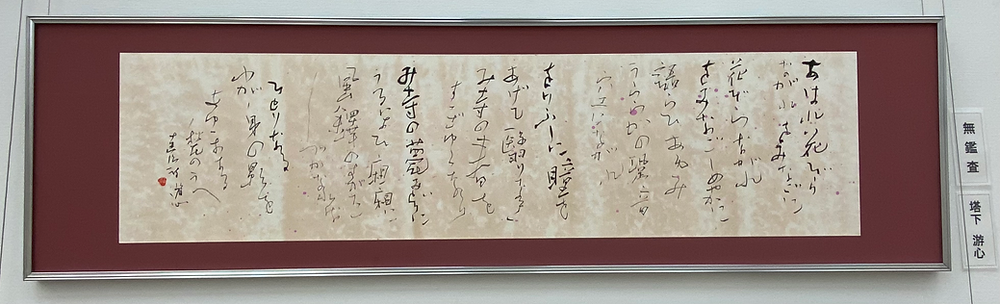 あはれ花びら
ながれをみなごに
花びらながれ
をみなごしめやかに
語らひあゆみ
うららかの跫音
空にながれ
をりふしに瞳を
あげて翳りなき
み寺の春を
すぎゆくなり
み寺の甍みどりに
うるほひ廂廂に
風鐸のすがた
しづかなれば
ひとりなる
わが身の影を
あゆまする
甃のうへ
達治詩 游心
無鑑査
塔下 游心